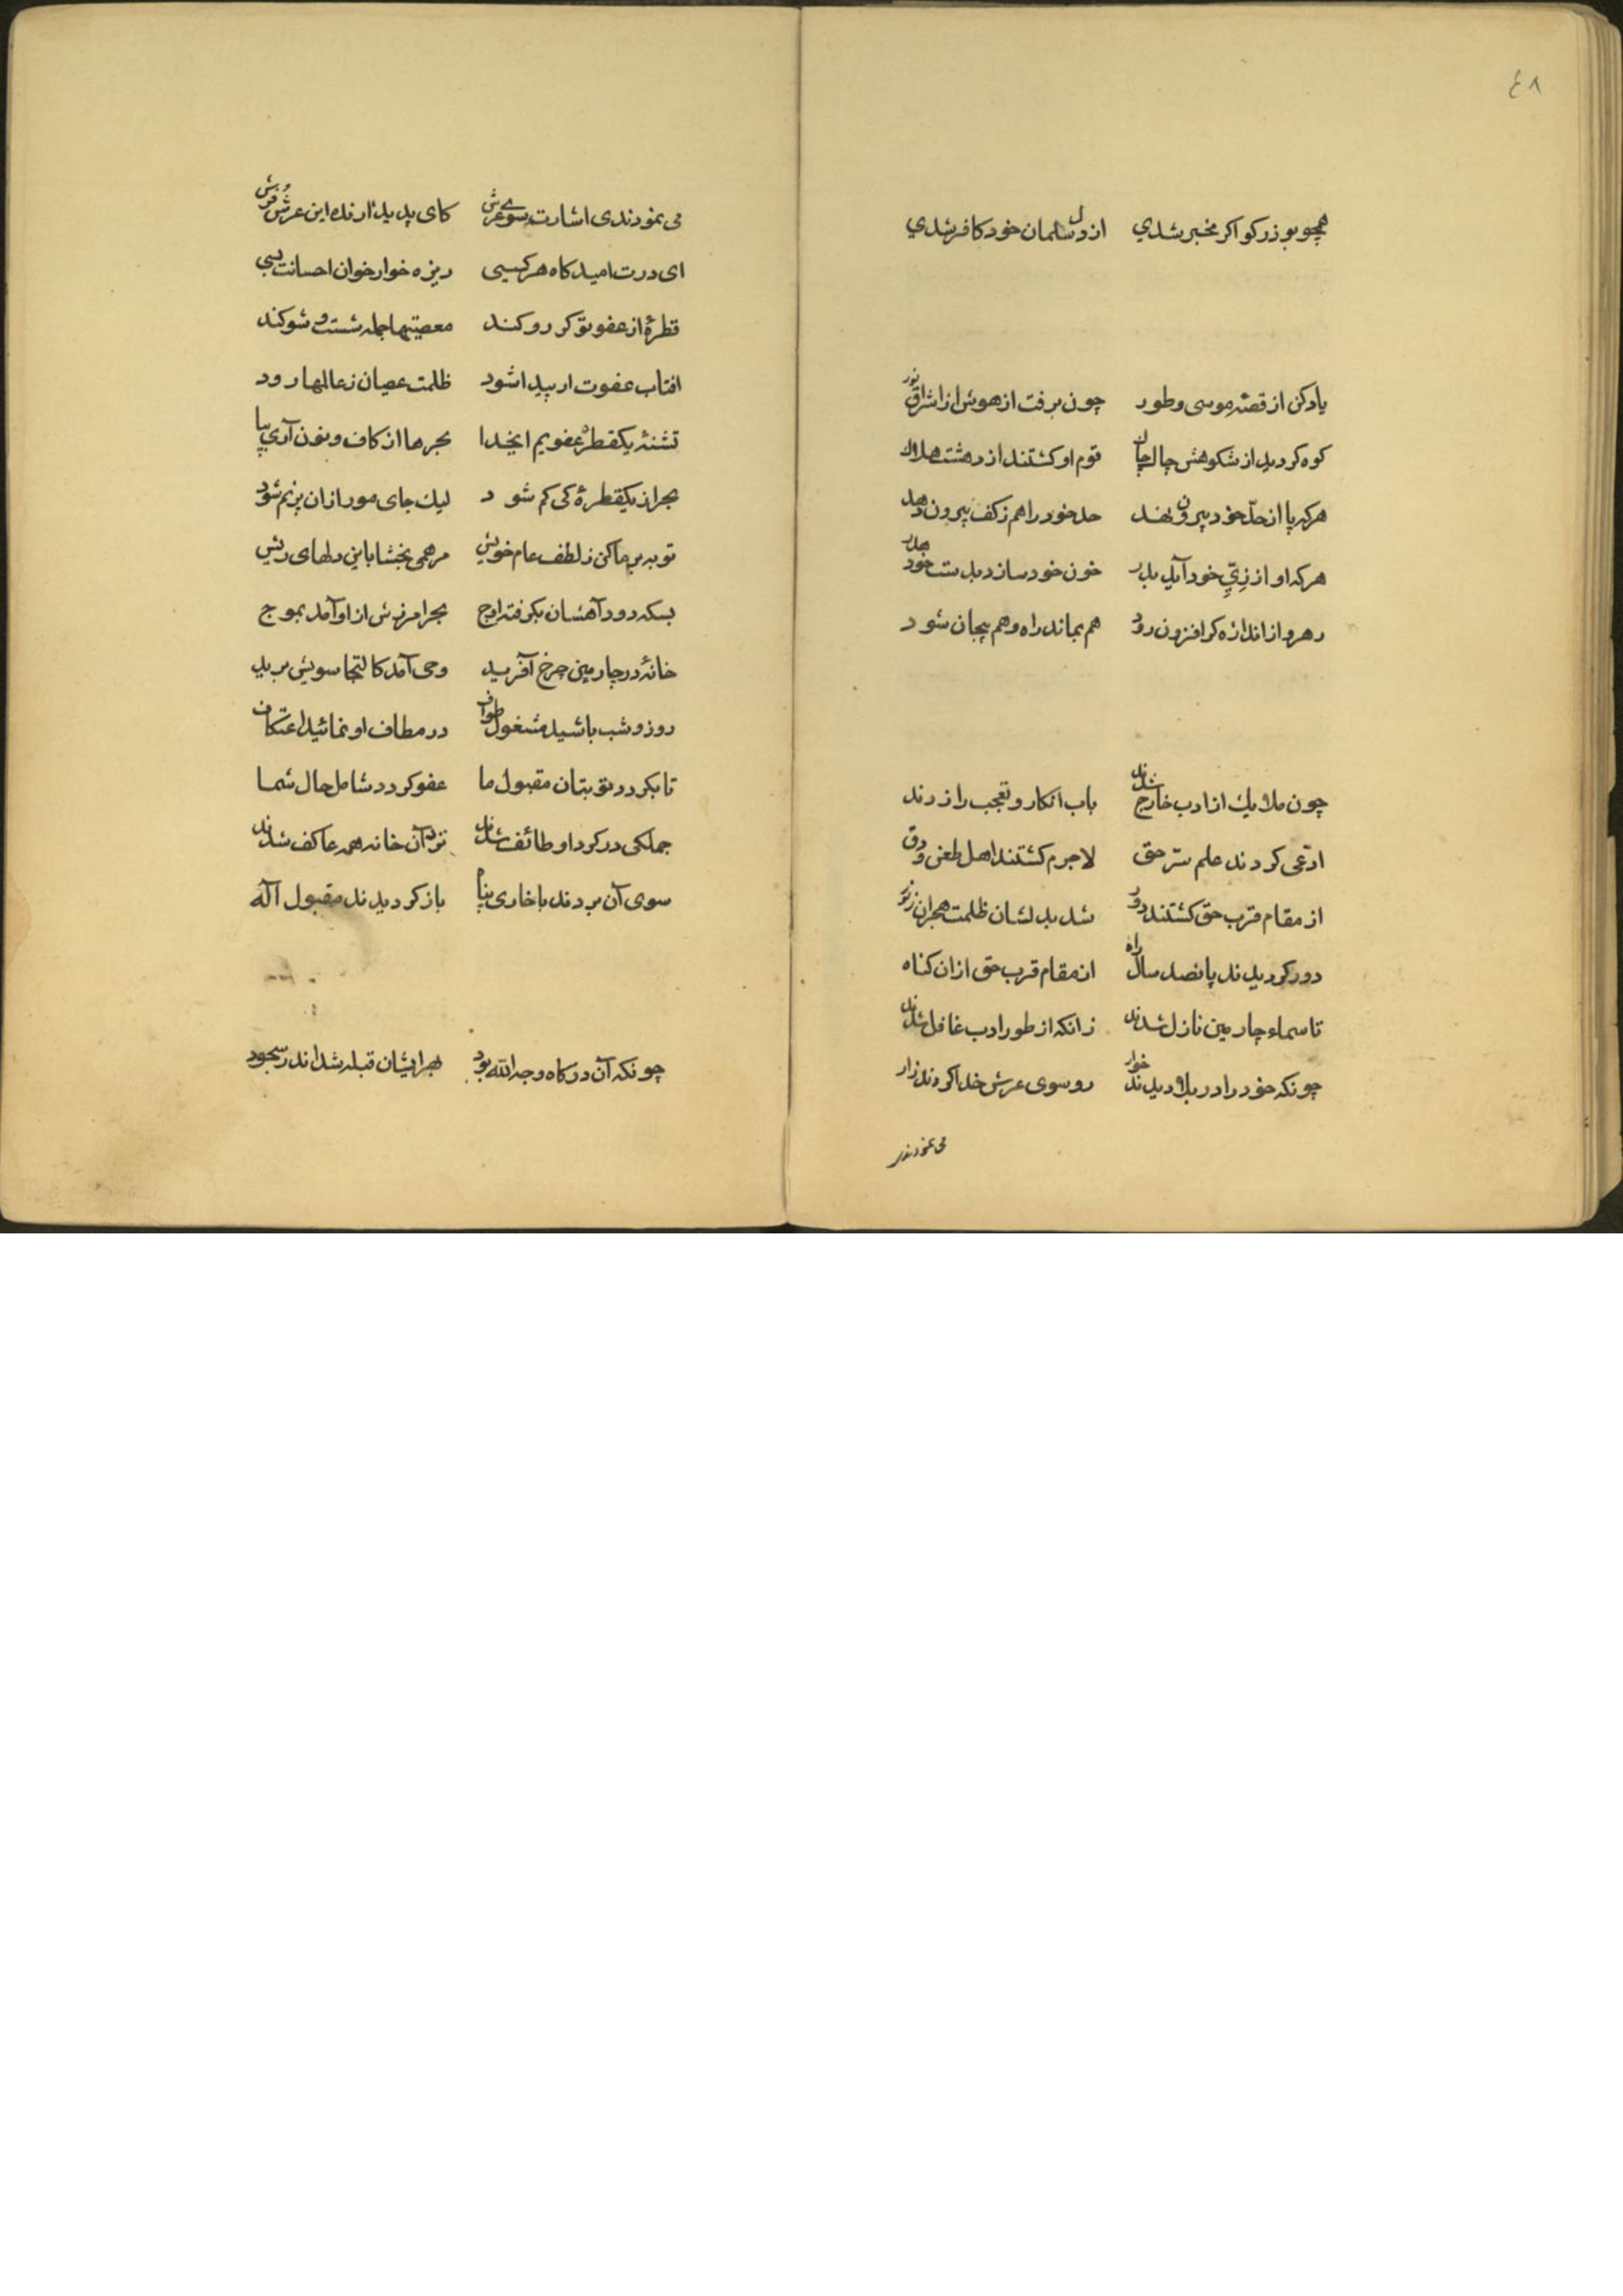 ٤٨
همچو بوذر کو اکر مخبر شدي از دل سلمان خود کافر شدي
یاد کن از قصهٔ موسی و طور چون برفت از هوش از اشراق نور
کوه کردید از شکوهش چاک چاک قوم او کشتند از دهشت هلاک
هرکه پا از حدّ خود بیرون نهد حد خود را هم ز کف بیرون دهد
هرکه او از زيِّ خود آید بدر خون خود سازد بدست خود هدر
رهرو از اندازه کر افزون رود هم بماند راه و هم بیجان شود
چون ملایك از ادب خارج شدند باب انکار و تعجب را زدند
ادّعی کردند علم سرّ حق لاجرم کشتند اهل طعن و دق
از مقام قرب حق کشتند دور شد بدلشان ظلمت هجران ز نور
دور کردیدند پانصد سال راه از مقام قرب حق از ان کناه
تا سماء چارمین نازل شدند زانکه از طور ادب غافل شدند
چونکه خود را در بلا دیدند خوار رو سوی عرش خدا کردند زار
می نمودند
می نمودندی اشارت سوی عرش کای پدید ارنده این عرش و فرش
ای درت امیدکاه هر کسی ریزه خوار خوان احسانت بسی
قطرهٔ از عفو تو کر رو کند معصیتها جمله شست و شو کند
افتاب عفوت ار پیدا شود ظلمت عصیان ز عالمها رود
تشنهٔ یکقطره عفویم ایخدا بحرها از کاف و نون آری بپا
بحر از یکقطرهٔ کی کم شود لیك جای مور ازان پر نم شود
توبه بر ما کن ز لطف عام خویش مرهمی بخشا باین دلهای ریش
بسکه دود آهشان بکرفته اوج بحر امرزش از او آمد بموج
خانهٔ در چارمین چرخ آفرید وحی آمد کالتجا سویش برید
روز و شب باشید مشغول طواف در مطاف او نمائید اعتکاف
تا بکردد توبتان مقبول ما عفو کردد شامل حال شما
جملکی در کرد او طائف شدند نزد آن خانه همه عاکف شدند
سوی آن بردند با خاری پناه باز کردیدند مقبول اله
چونکه آن درکاه وجه الله بود بهر ایشان قبله شد اندر سجود